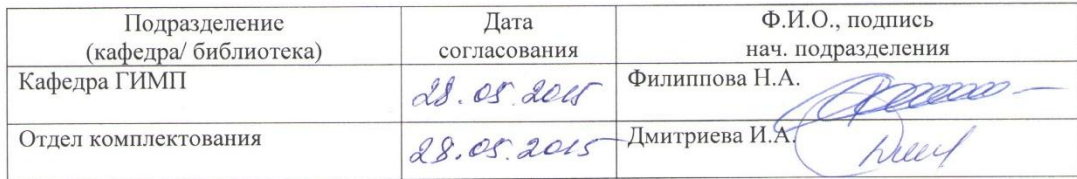 Подразделение
(кафедра/ библиотека)
Дата
согласования
Ф.И.О., подпись
нач. подразделения
Кафедра ГИМП
28.05.2015
Филиппова Н.А.
Отдел комплектования
28.05.2015
Дмитриева И.А.